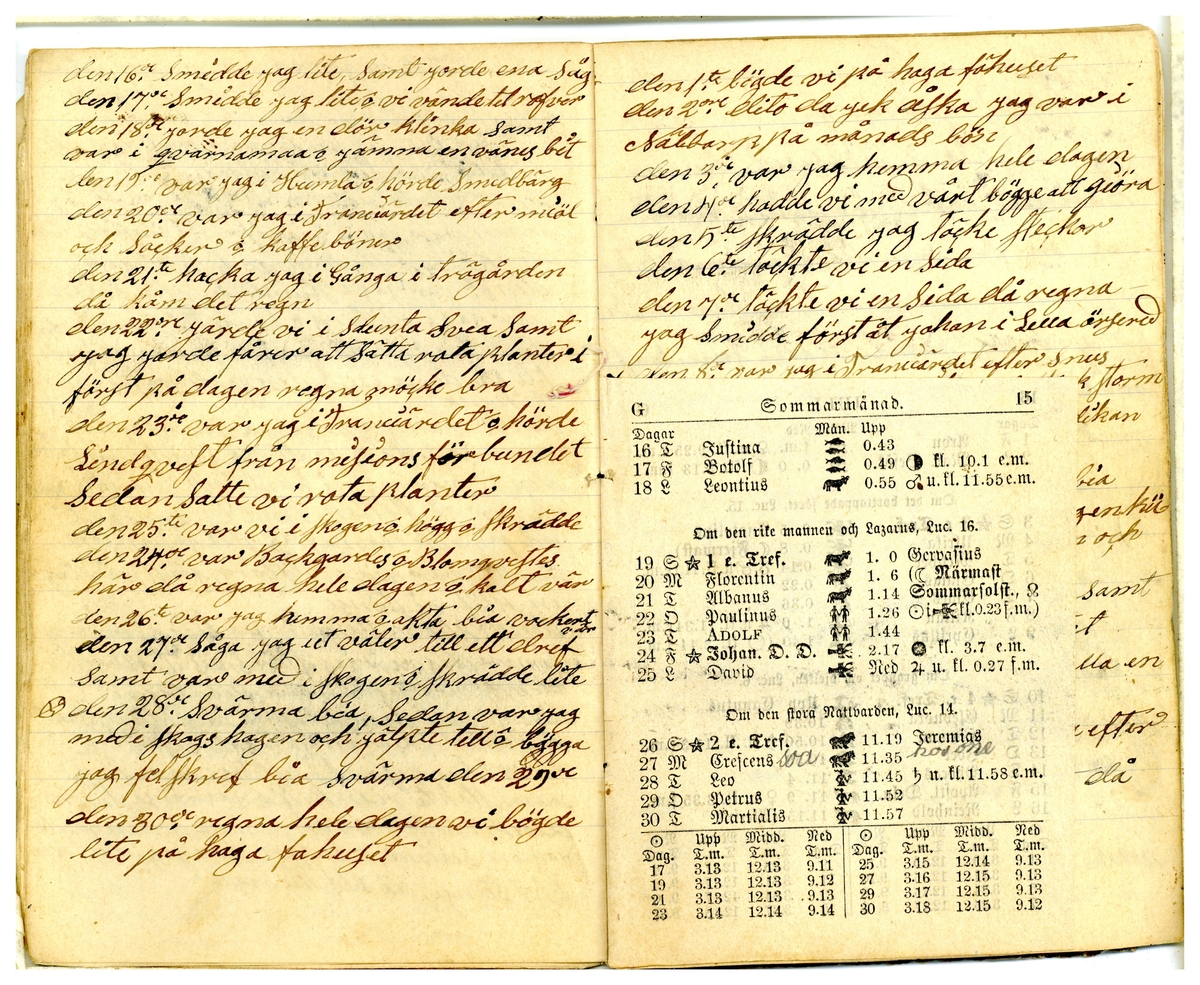 den 16de Smidde jag lite, Samt jorde ena Såg
den 17de Smidde jag lite o vi vände til
den 18de jorde jag en dör klinka Samt
var i qvarnamaa o jämna en vänes bit
den 19de var jag i Humla o hörde Smedbärg
den 20de var jag i Tranuärdet efter miöl
och Såcker o kaffebönor
den 21te hacka jag i Gånga i trägården
då kåm det regn
den 22dre järde vi i Slunta Svea Samt
jag jorde fårer att Sätta rota planter i
först på dagen regna möcke bra
den 23de var jag i Tranuärdet o hörde
Lindqvest från misions för bundet
Sedan Satte vi rota planter
den 25te var vi i skogen o högg o skrädde
den 24de var Backgardes o Blomqvestes
här då regna hele dagen o kalt vär
den 26te var jag hemma o akta bia vackert
vär
den 27de Såga jag ut väler till ett dref
Samt var med i skogen o skrädde lite
den 28de Svärma bia, Sedan var jag
med i skogs hagen och jälpte tell o bögga
jag felskref bia Svärma den 29de
den 30de regna hele dagen vi bögde
lite på haga fahuset
den 1te bögde vi på haga fähuset
den 2dre dito da gek åska jag var i
på månads bön
den 3de var jag hemma hele dagen
den 4de hadde vi med vårt bögge att giöra
den 5te skrädde jag täcke steckor
den 6te täckte vi en Sida
den 7de täckte vi en Sida då regna
jag Smidde först åt johan i Lella
den 8de var jag i Tranuärdet efter snus
storm
bia
och
samt
lla en
efter
då
G Sommarmånad. 15
Dagar Mån. Upp
16 T Justina 0.43
17 F Botolf 0.49 ◑ kl. 10.1 e.m.
18 L Leontius 0.55 ♂ u. kl. 11.55 e.m.
Om den rike mannen och Lazarus, Luc. 16.
19 S ★ 1 e. Tref. 1. 0 Gervasius
20 M Florentin 1. 6 (☾ Närmast
21 T Albanus 1.14 Sommarsolst., ☊
22 O Paulinus 1.26 ☉ i kl. 0.23 f.m.)
23 T ADOLF 1.44
24 F ★ Johan. D. D. 2.17 kl. 3.7 e.m.
25 L David Ned ♃ u. kl. 0.27 f.m.
Om den stora Nattvarden, Luc. 14.
26 S ★ 2 e. Tref. 11.19 Jeremias
27 M Crescens 11.35
28 T Leo 11.45 ♄ u. kl. 11.58 e.m.
29 O Petrus 11.52
30 T Martialis 11.57
☉ Upp Midd. Ned ☉ Upp Midd. Ned
Dag. T.m. T.m. T.m. Dag. T.m. T.m. T.m.
17 3.13 12.13 9.11 25 3.15 12.14 9.13
19 3.13 12.13 9.12 27 3.16 12.15 9.13
21 3.13 12.13 9.13 29 3.17 12.15 9.13
23 3.14 12.14 9.14 30 3.18 12.15 9.12